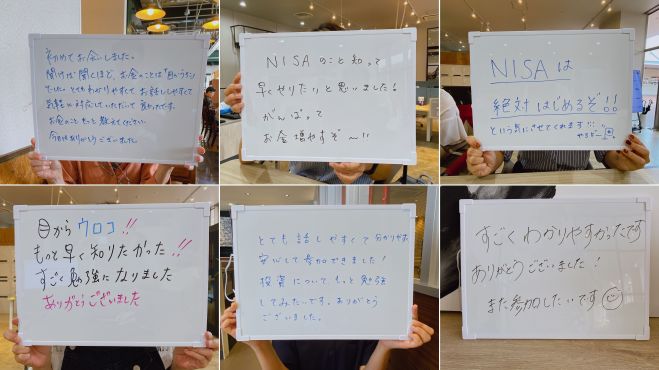 初めてお会いしました。
聞けば聞くほど、お金のことは"目からウロコ"
でした。とてもわかりやすくて、お話ししやすくて
気軽に対応していただいて良かったです。
お金のこともっと教えてください。
今日はありがとうございました。
NISAのこと知って
早くやりたいと思いました!
がんばって
お金増やすぞ〜!!
NISAは
絶対はじめるぞ!!
という気にさせてくれます!!!
やるぞー
目からウロコ!!
もっと早く知りたかった!!
すごく勉強になりました
ありがとうございました
とても話しやすくて分かりやす
安心して参加できました!
投資について、もっと勉強
してみたいです。ありがとう
ございました。
すごくわかりやすかったです
ありがとうございました!
また参加したいです